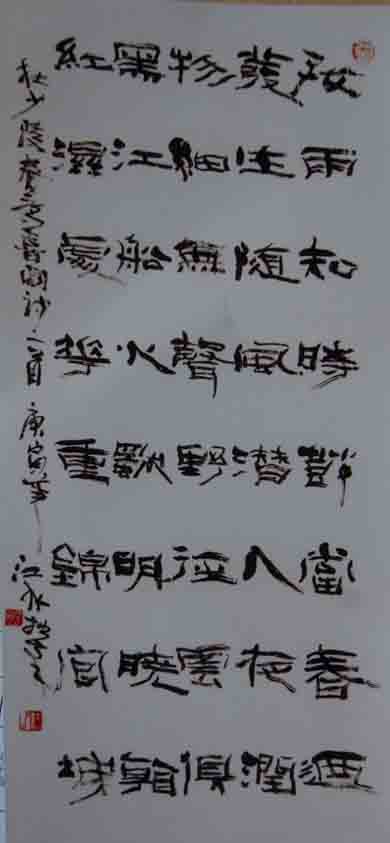 好雨知時節當春迺
發生隨風潛入夜潤
物細無聲野徑雲俱
黑江船火獨明曉看
紅濕處華重錦官城
杜少陵春夜喜雨詩一首 庚寅年